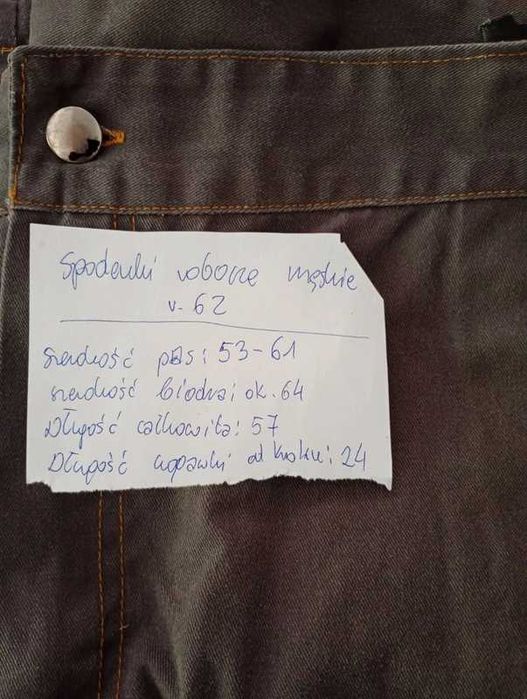 Spodenki robocze męskie
r. 62
szerokość pas: 53-61
szerokość biodra: ok. 64
Długość całkowita: 57
Długość nogawki od kroku: 24